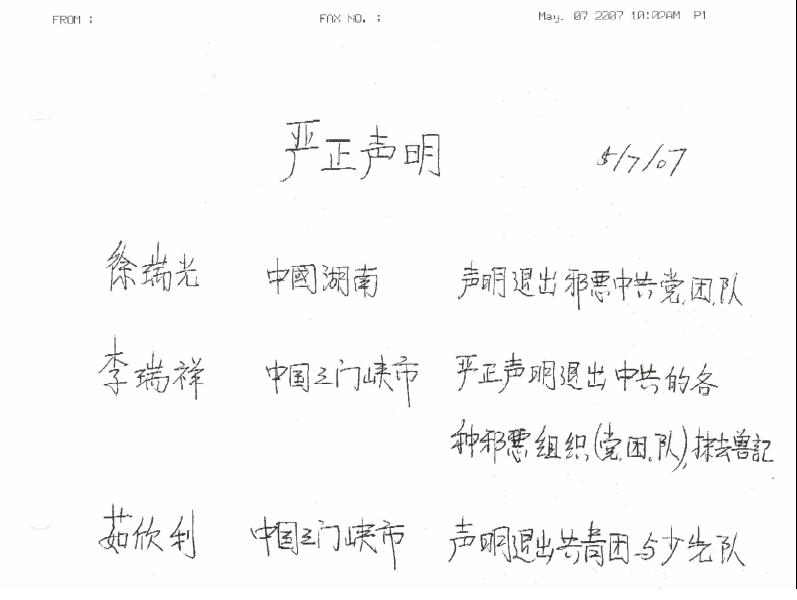 FROM : FAX NO. : May. 07 2007 10:02AM P1
严正声明 5/7/07
徐瑞光 中國湖南 声明退出邪恶中共党、团、队
李瑞祥 中国三门峡市 严正声明退出中共的各
种邪恶组织(党、团、队),抹去兽記
茹欣利 中国三门峡市 声明退出共青团与少先队